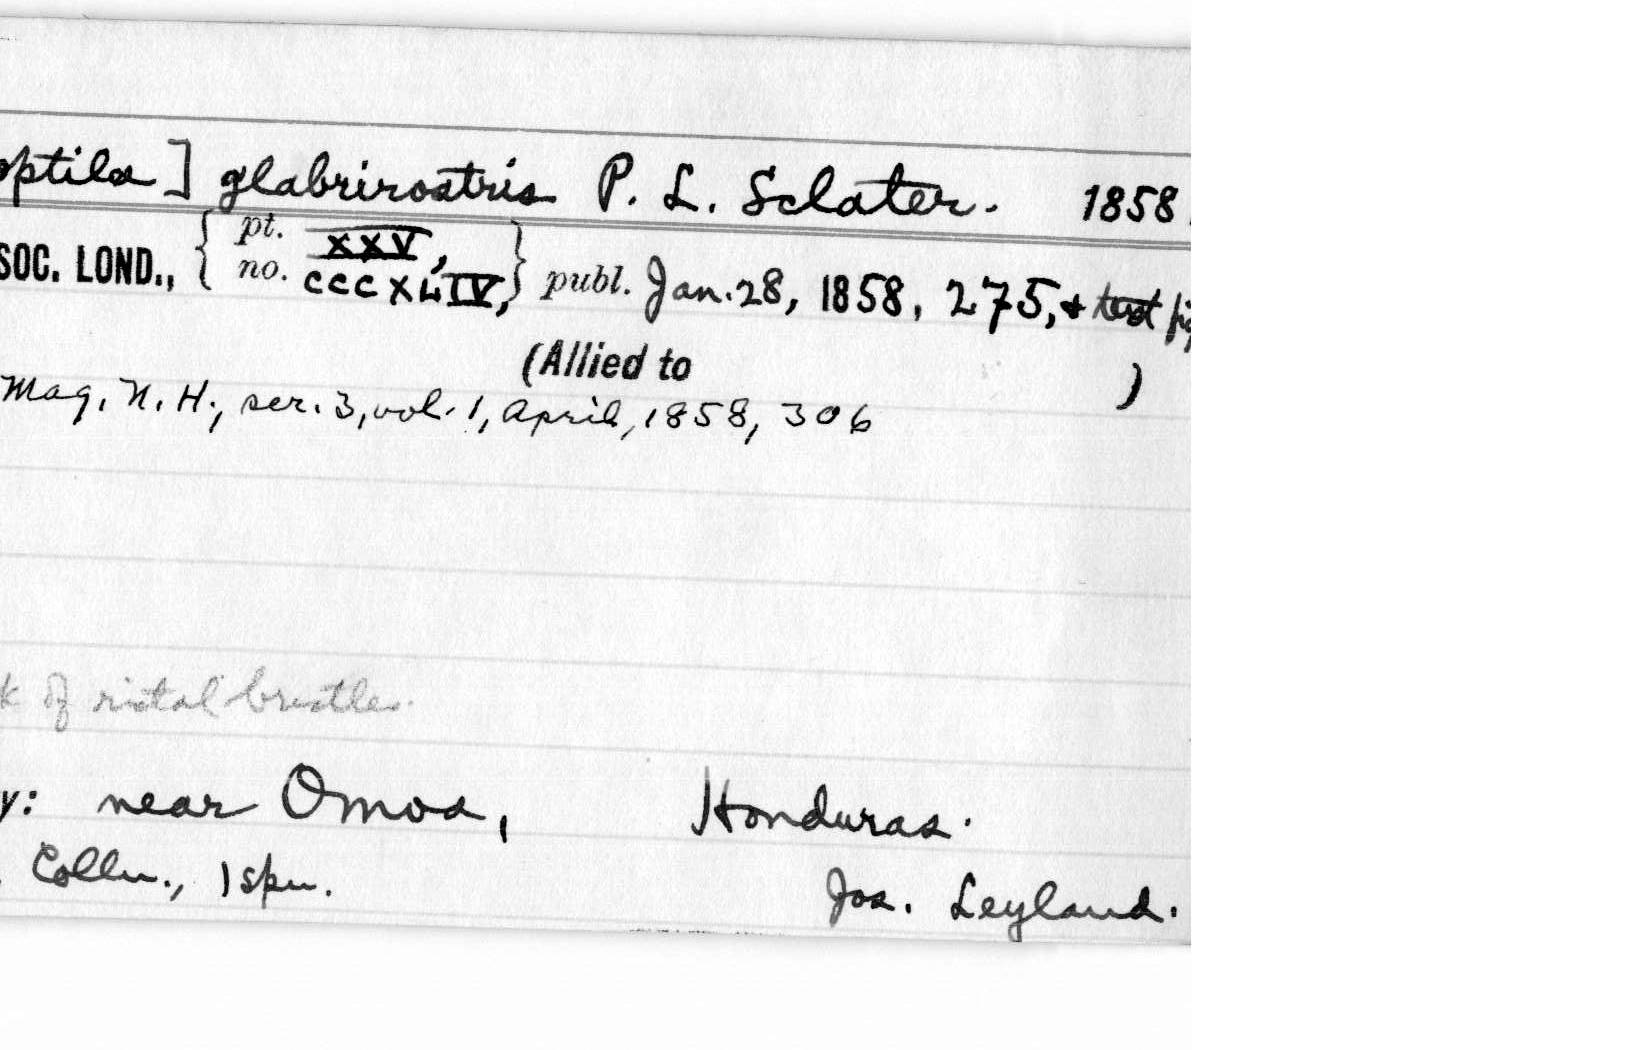 optila] glabrirostris P. L. Sclater. 1858.
SOC. LOND., { pt. XXV,
no. CCCXLIV, } publ. Jan. 28, 1858, 275, & text fig
(Allied to )
Mag. N. H., ser. 3, vol. 1, April, 1858, 306
k of rictal bristles.
y: near Omoa, Honduras.
Colln., 1 spn. Jos. Leyland.